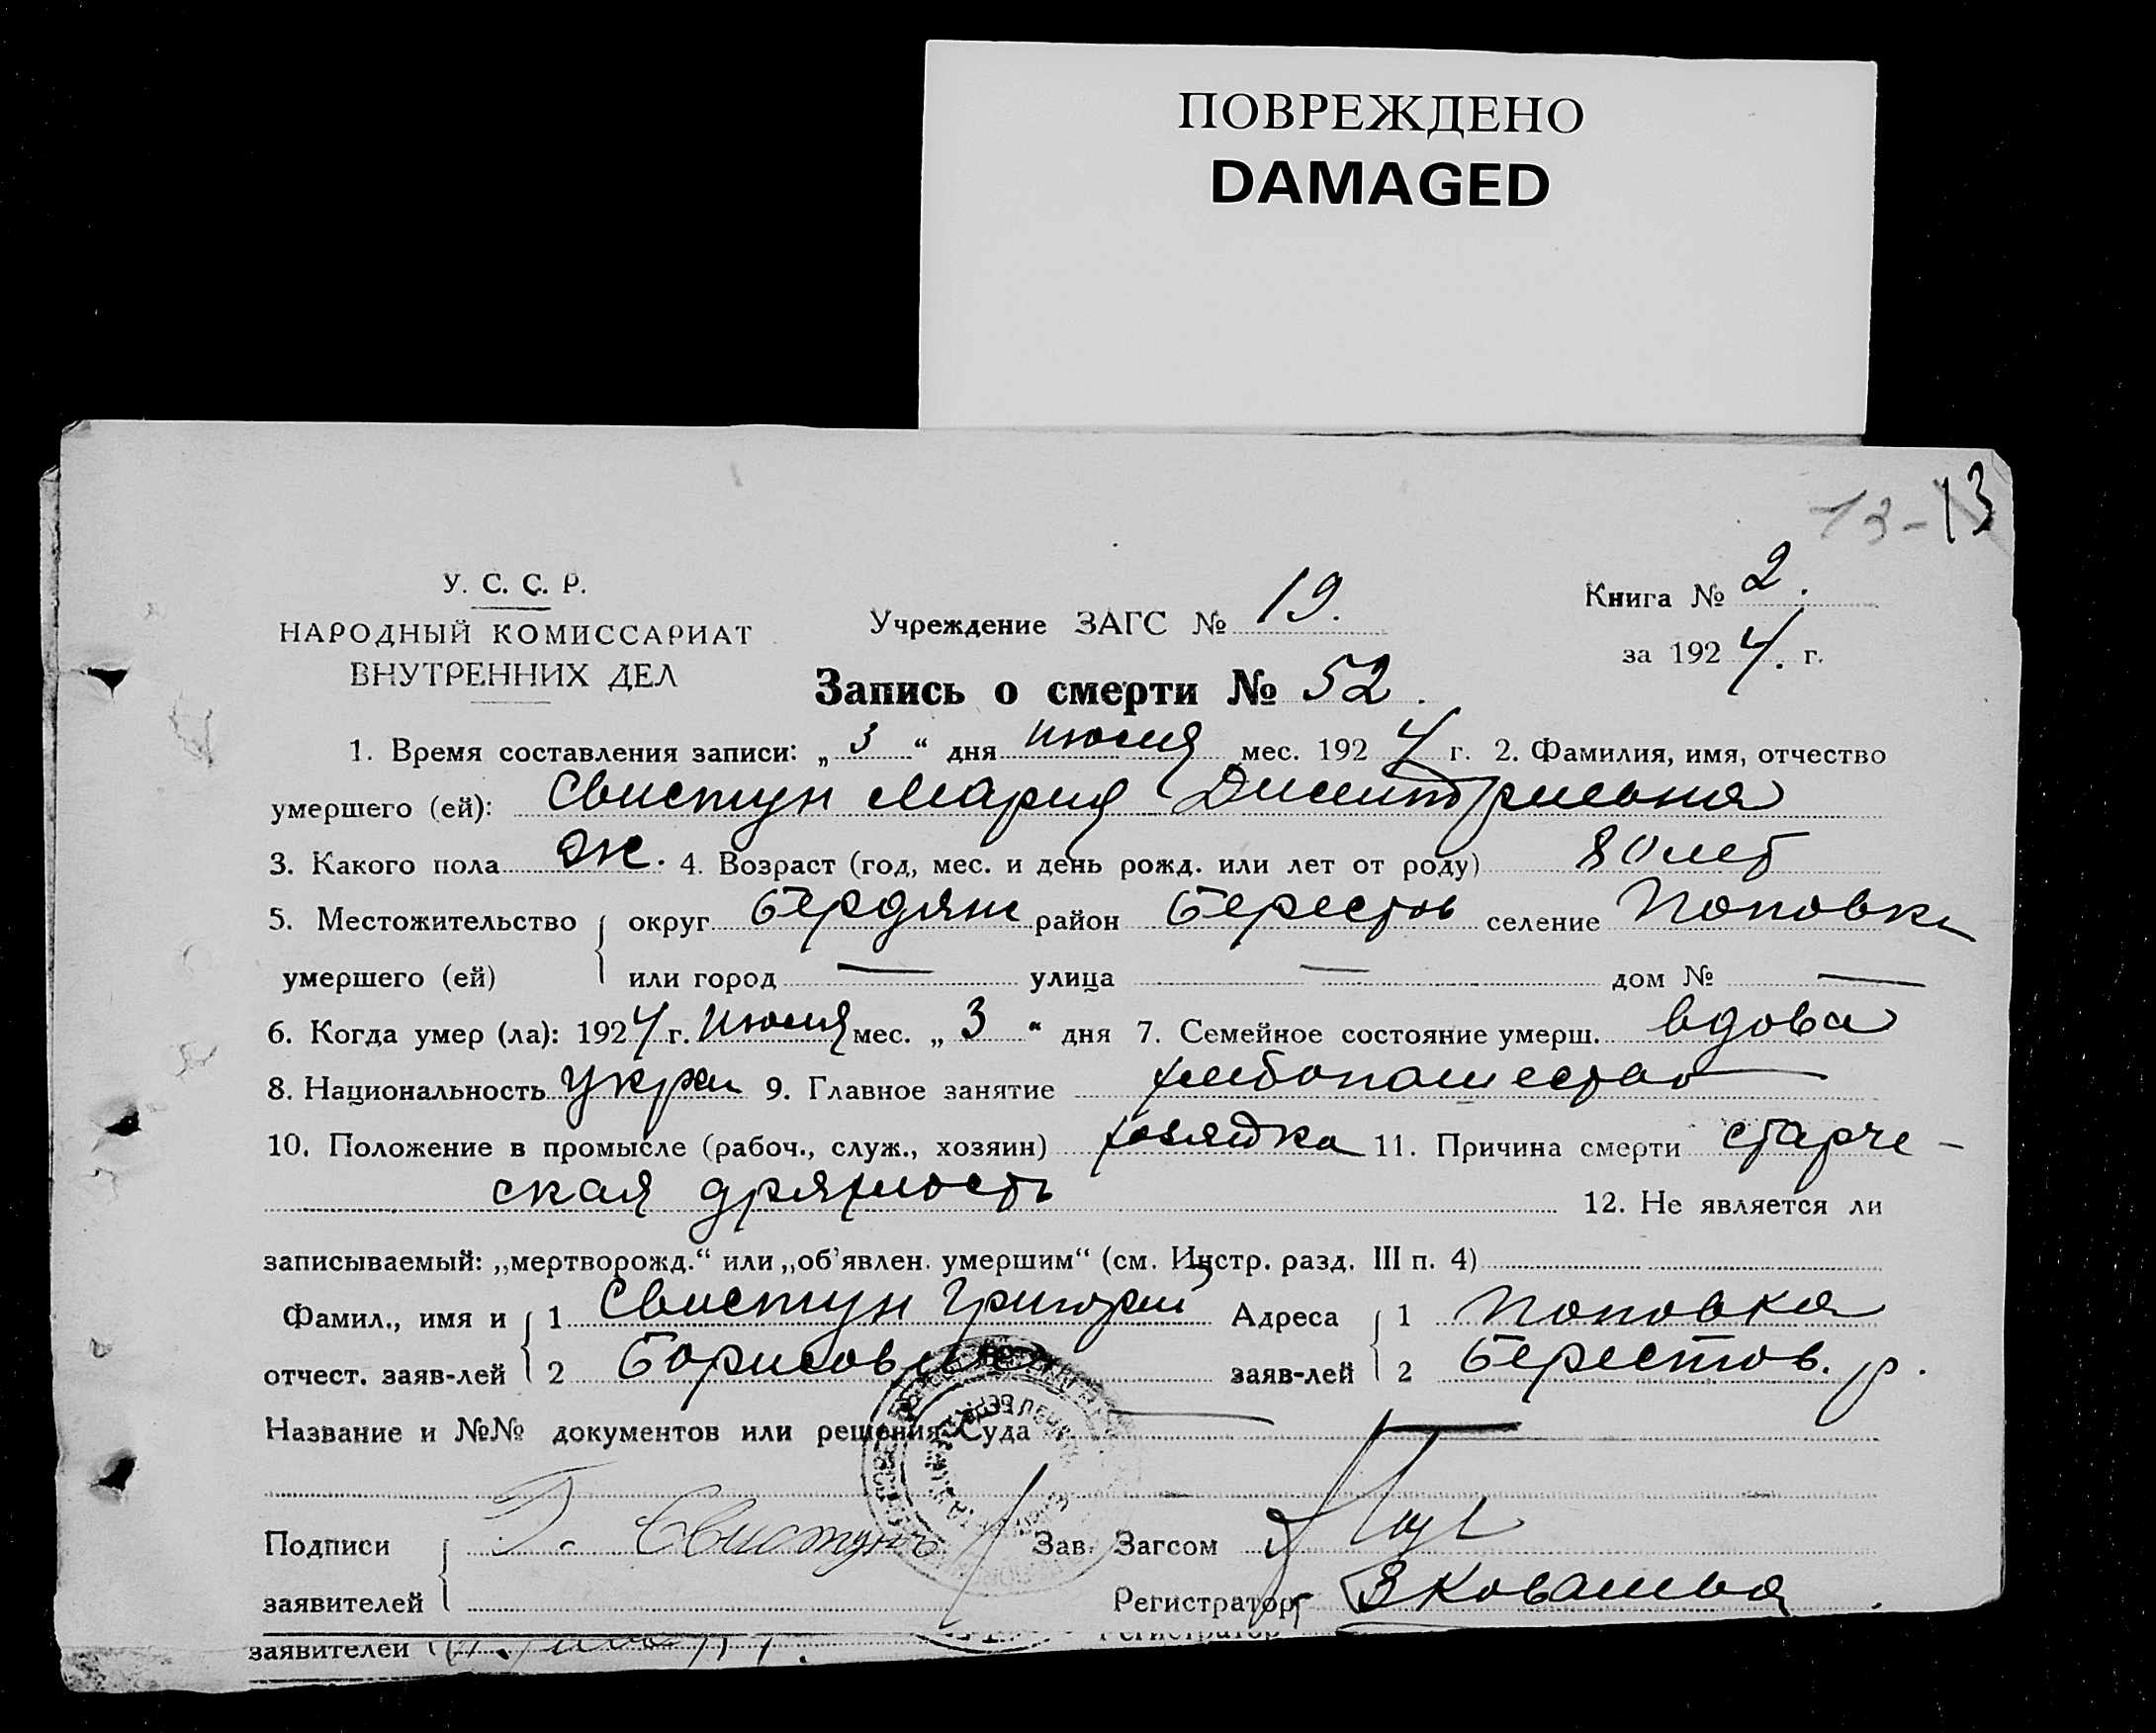 ПОВРЕЖДЕНО
DAMAGED
13-13
У. С. С. Р.
НАРОДНЫЙ КОМИССАРИАТ
ВНУТРЕННИХ ДЕЛ
Учреждение ЗАГС № 19.
Книга № 2.
за 1924. г.
Запись о смерти № 52.
1. Время составления записи: „3“ дня июля мес. 1924 г. 2. Фамилия, имя, отчество
умершего (ей): Свистун Мария Димитриевна
3. Какого пола ж. 4. Возраст (год, мес. и день рожд. или лет от роду) 80 лет
5. Местожительство округ Бердянс район Берестов селение Поповка
умершего (ей) или город — улица — дом № —
6. Когда умер (ла): 1924 г. июля мес. „3“ дня 7. Семейное состояние умерш. вдова
8. Национальность украи 9. Главное занятие хлебопашество
10. Положение в промысле (рабоч., служ., хозяин) хозяйка 11. Причина смерти старче-
ская дряхлость 12. Не является ли
записываемый: „мертворожд.“ или „об'явлен. умершим“ (см. Инстр. разд. III п. 4)
Фамил., имя и 1 Свистун Григорий Адреса 1 Поповка
отчест. заяв-лей 2 Борисович заяв-лей 2 Берестов. р.
Название и №№ документов или решения Суда —
Подписи Г. Свистун Зав. Загсом
заявителей Регистратор
заявителей